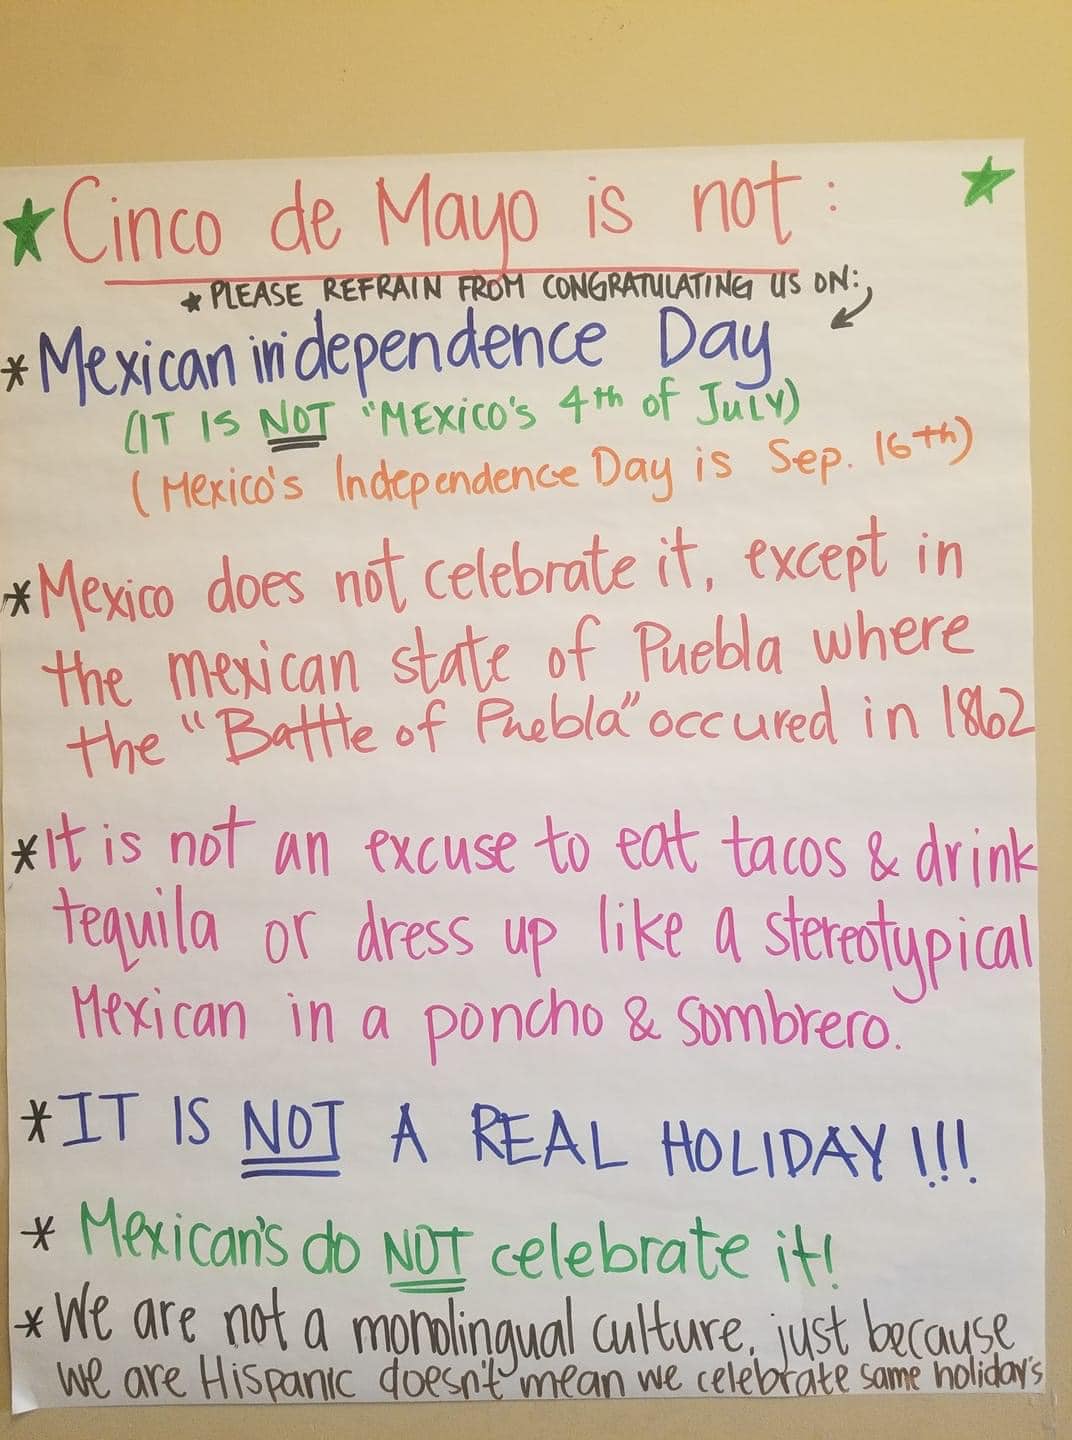 Cinco de Mayo is not:
* PLEASE REFRAIN FROM CONGRATULATING US ON:
* Mexican independence Day
(IT IS NOT "MEXICO'S 4th of JULY)
(Mexico's Independence Day is Sep. 16th)
* Mexico does not celebrate it, except in
the mexican state of Puebla where
the "Battle of Puebla" occured in 1862
* It is not an excuse to eat tacos & drink
tequila or dress up like a stereotypical
Mexican in a poncho & sombrero.
* IT IS NOT A REAL HOLIDAY!!!
* Mexican's do NOT celebrate it!
* We are not a monolingual culture, just because
we are Hispanic doesn't mean we celebrate same holiday's